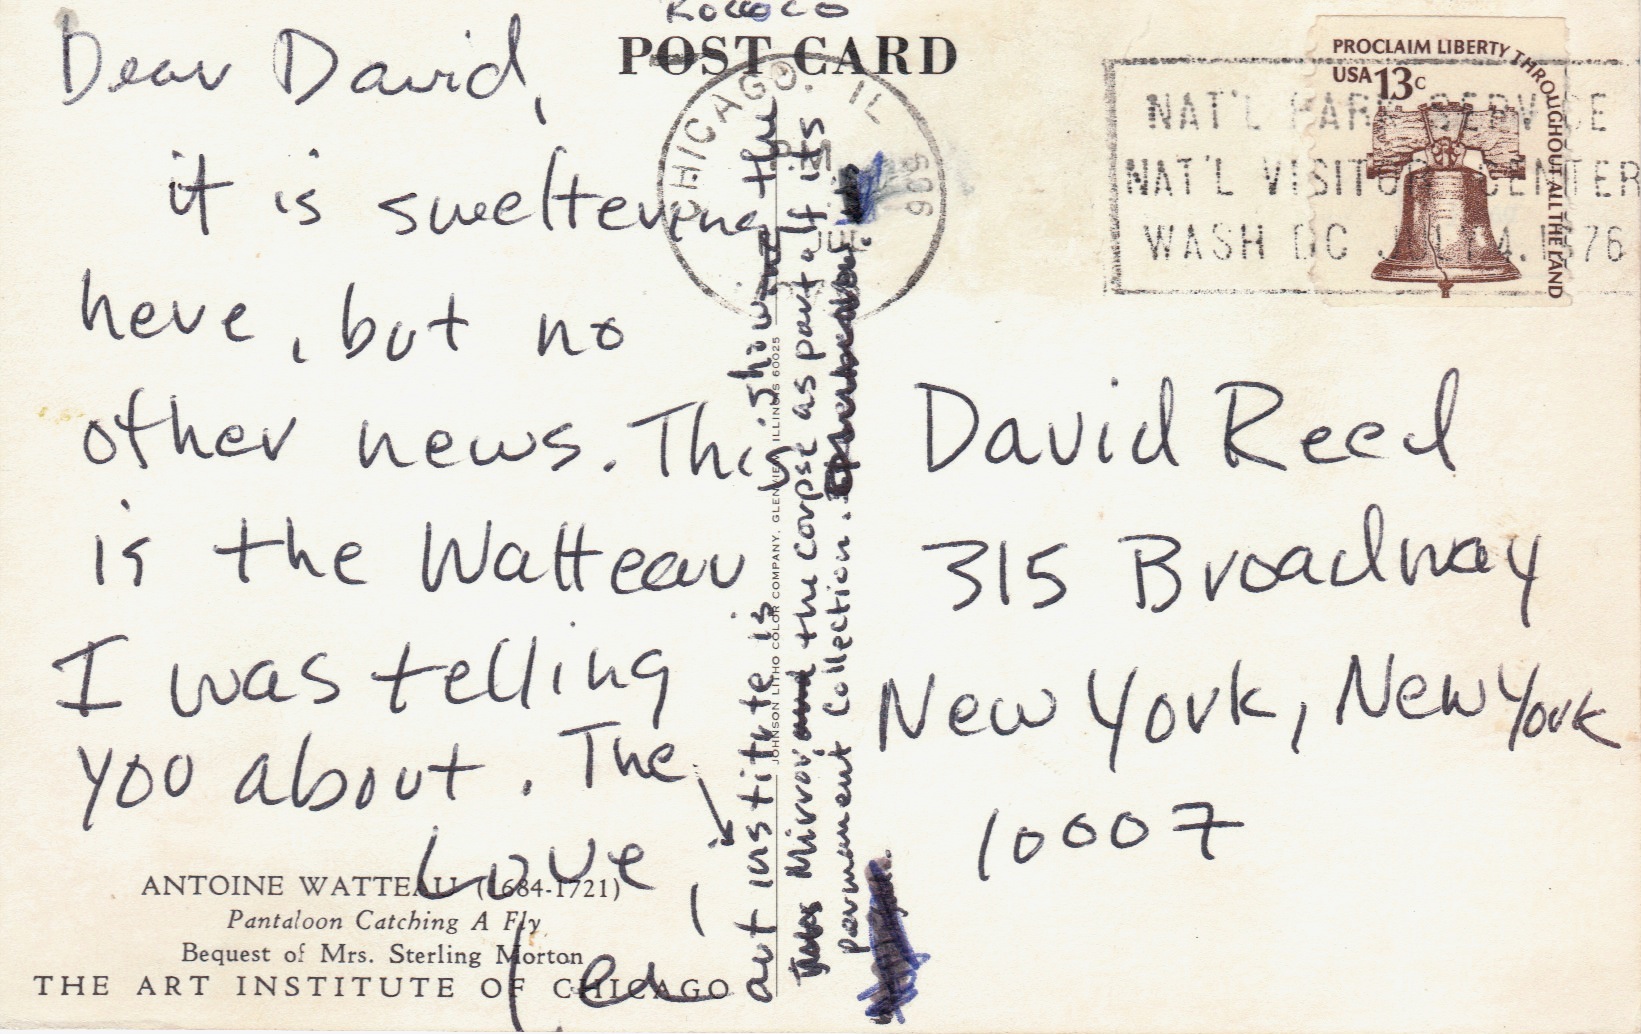 ROCOCO
POST CARD
Dear David,
it is sweltering
here, but no
other news. This
is the Watteau
I was telling
you about. The
art institute is showing the
Mirror and the corpse as part of its
permanent collection.
Love,
ed
ANTOINE WATTEAU (1684-1721)
Pantaloon Catching A Fly
Bequest of Mrs. Sterling Morton
THE ART INSTITUTE OF CHICAGO
JOHNSON LITHO COLOR COMPANY, GLENVIEW, ILLINOIS 60025
CHICAGO, IL
606
PROCLAIM LIBERTY THROUGHOUT ALL THE LAND
USA 13c
NAT'L PARK SERVICE
NAT'L VISITOR CENTER
WASH DC JULY 4, 1976
David Reed
315 Broadway
New York, New York
10007